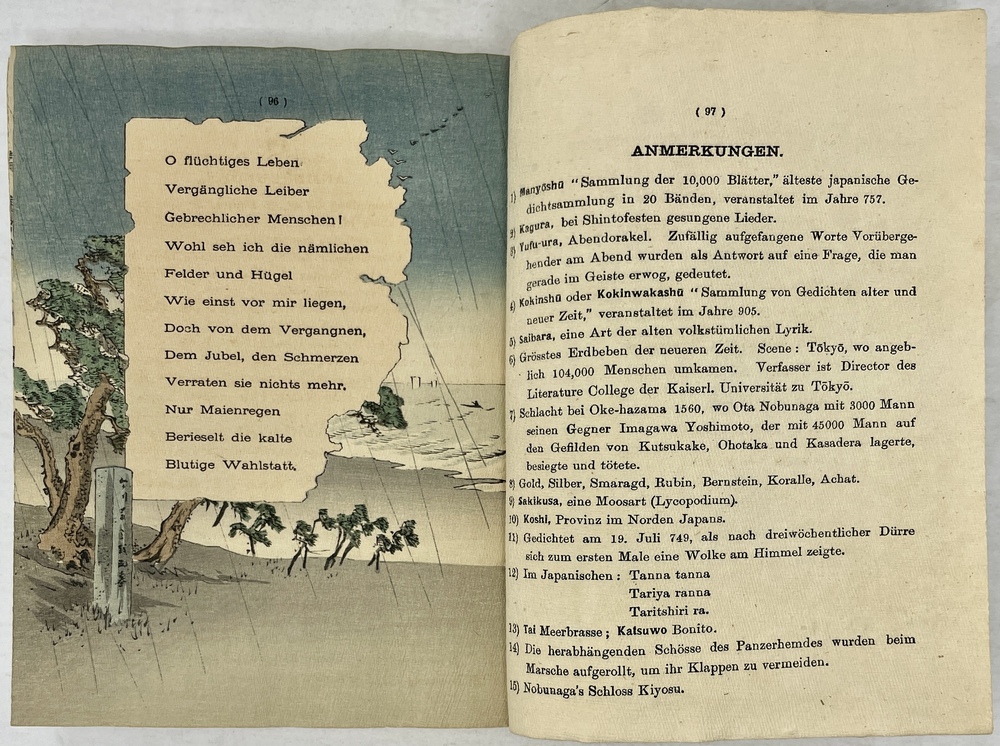 ( 96 )
O flüchtiges Leben
Vergängliche Leiber
Gebrechlicher Menschen!
Wohl seh ich die nämlichen
Felder und Hügel
Wie einst vor mir liegen,
Doch von dem Vergangnen,
Dem Jubel, den Schmerzen
Verraten sie nichts mehr.
Nur Maienregen
Berieselt die kalte
Blutige Wahlstatt.
( 97 )
ANMERKUNGEN.
1) Manyōshū “Sammlung der 10,000 Blätter,” älteste japanische Ge-
dichtsammlung in 20 Bänden, veranstaltet im Jahre 757.
2) Kagura, bei Shintofesten gesungene Lieder.
3) Yufu-ura, Abendorakel. Zufällig aufgefangene Worte Vorüberge-
hender am Abend wurden als Antwort auf eine Frage, die man
gerade im Geiste erwog, gedeutet.
4) Kokinshū oder Kokinwakashū “Sammlung von Gedichten alter und
neuer Zeit,” veranstaltet im Jahre 905.
5) Saibara, eine Art der alten volkstümlichen Lyrik.
6) Grösstes Erdbeben der neueren Zeit. Scene: Tōkyō, wo angeb-
lich 104,000 Menschen umkamen. Verfasser ist Director des
Literature College der Kaiserl. Universität zu Tōkyō.
7) Schlacht bei Oke-hazama 1560, wo Ota Nobunaga mit 3000 Mann
seinen Gegner Imagawa Yoshimoto, der mit 45000 Mann auf
den Gefilden von Kutsukake, Ohotaka und Kasadera lagerte,
besiegte und tötete.
8) Gold, Silber, Smaragd, Rubin, Bernstein, Koralle, Achat.
9) Sakikusa, eine Moosart (Lycopodium).
10) Koshi, Provinz im Norden Japans.
11) Gedichtet am 19. Juli 749, als nach dreiwöchentlicher Dürre
sich zum ersten Male eine Wolke am Himmel zeigte.
12) Im Japanischen: Tanna tanna
Tariya ranna
Taritshiri ra.
13) Tai Meerbrasse; Katsuwo Bonito.
14) Die herabhängenden Schösse des Panzerhemdes wurden beim
Marsche aufgerollt, um ihr Klappen zu vermeiden.
15) Nobunaga's Schloss Kiyosu.